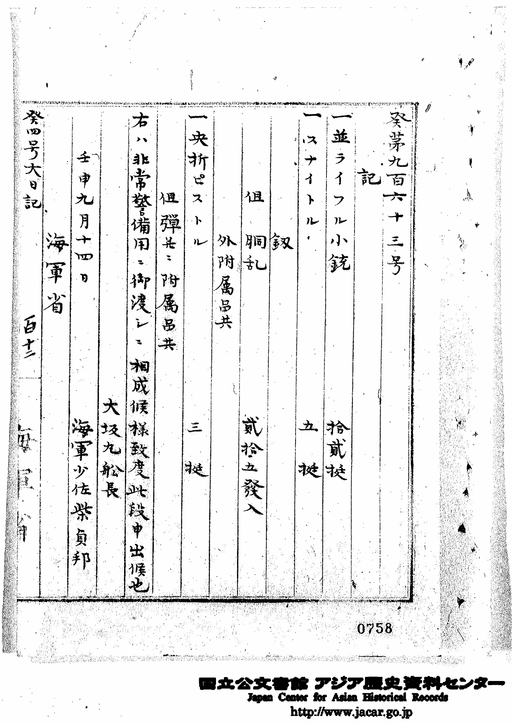 癸第九百六十三号
記
一並ライフル小銃 拾貳挺
一スナイトル 五挺
釼
但 胴乱 貳拾五發入
外附属品共
一央折ピストル 三挺
但弾共ニ附属品共
右ハ非常警備用ニ御渡シニ相成候様致度此段申出候也
大坂丸舩長
海軍少佐柴貞邦
壬申九月十四日
海軍省
癸四号大日記 百十二
海軍省
0758
国立公文書館 アジア歴史資料センター
Japan Center for Asian Historical Records
http://www.jacar.go.jp